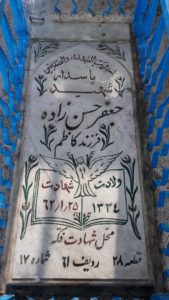 پاسدار
شهید
جعفر حسن زاده
فرزند کاظم
ولادت شهادت
۱۳۳۴ ۶۲/۱/۲۵
محل شهادت فکه
قطعه ۲۸ ردیف ۶۱ شماره ۱۷